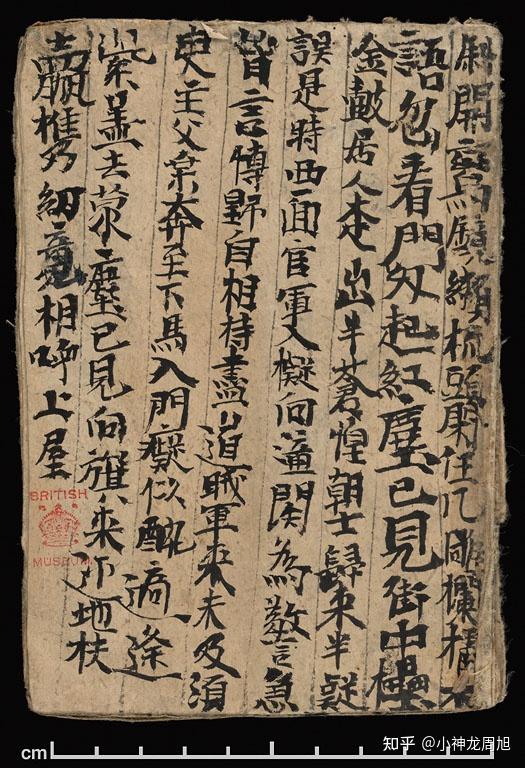 斜開鸞鏡懶梳頭閑任几雕欄慵不
語忽看門外起紅塵已見街中擂
金皷居人走出半蒼惶朝士歸來半疑
誤是時西面官軍入擬向潼関為警急
皆言博野自相持盡道賊軍來未及須
臾主父乗奔至下馬入門癡似醉適逢
紫蓋去蒙塵已見向旗來迊地扶
羸攜幼竟相呼上屋
BRITISH
MUSEUM
cm
知乎 @小神龙周旭